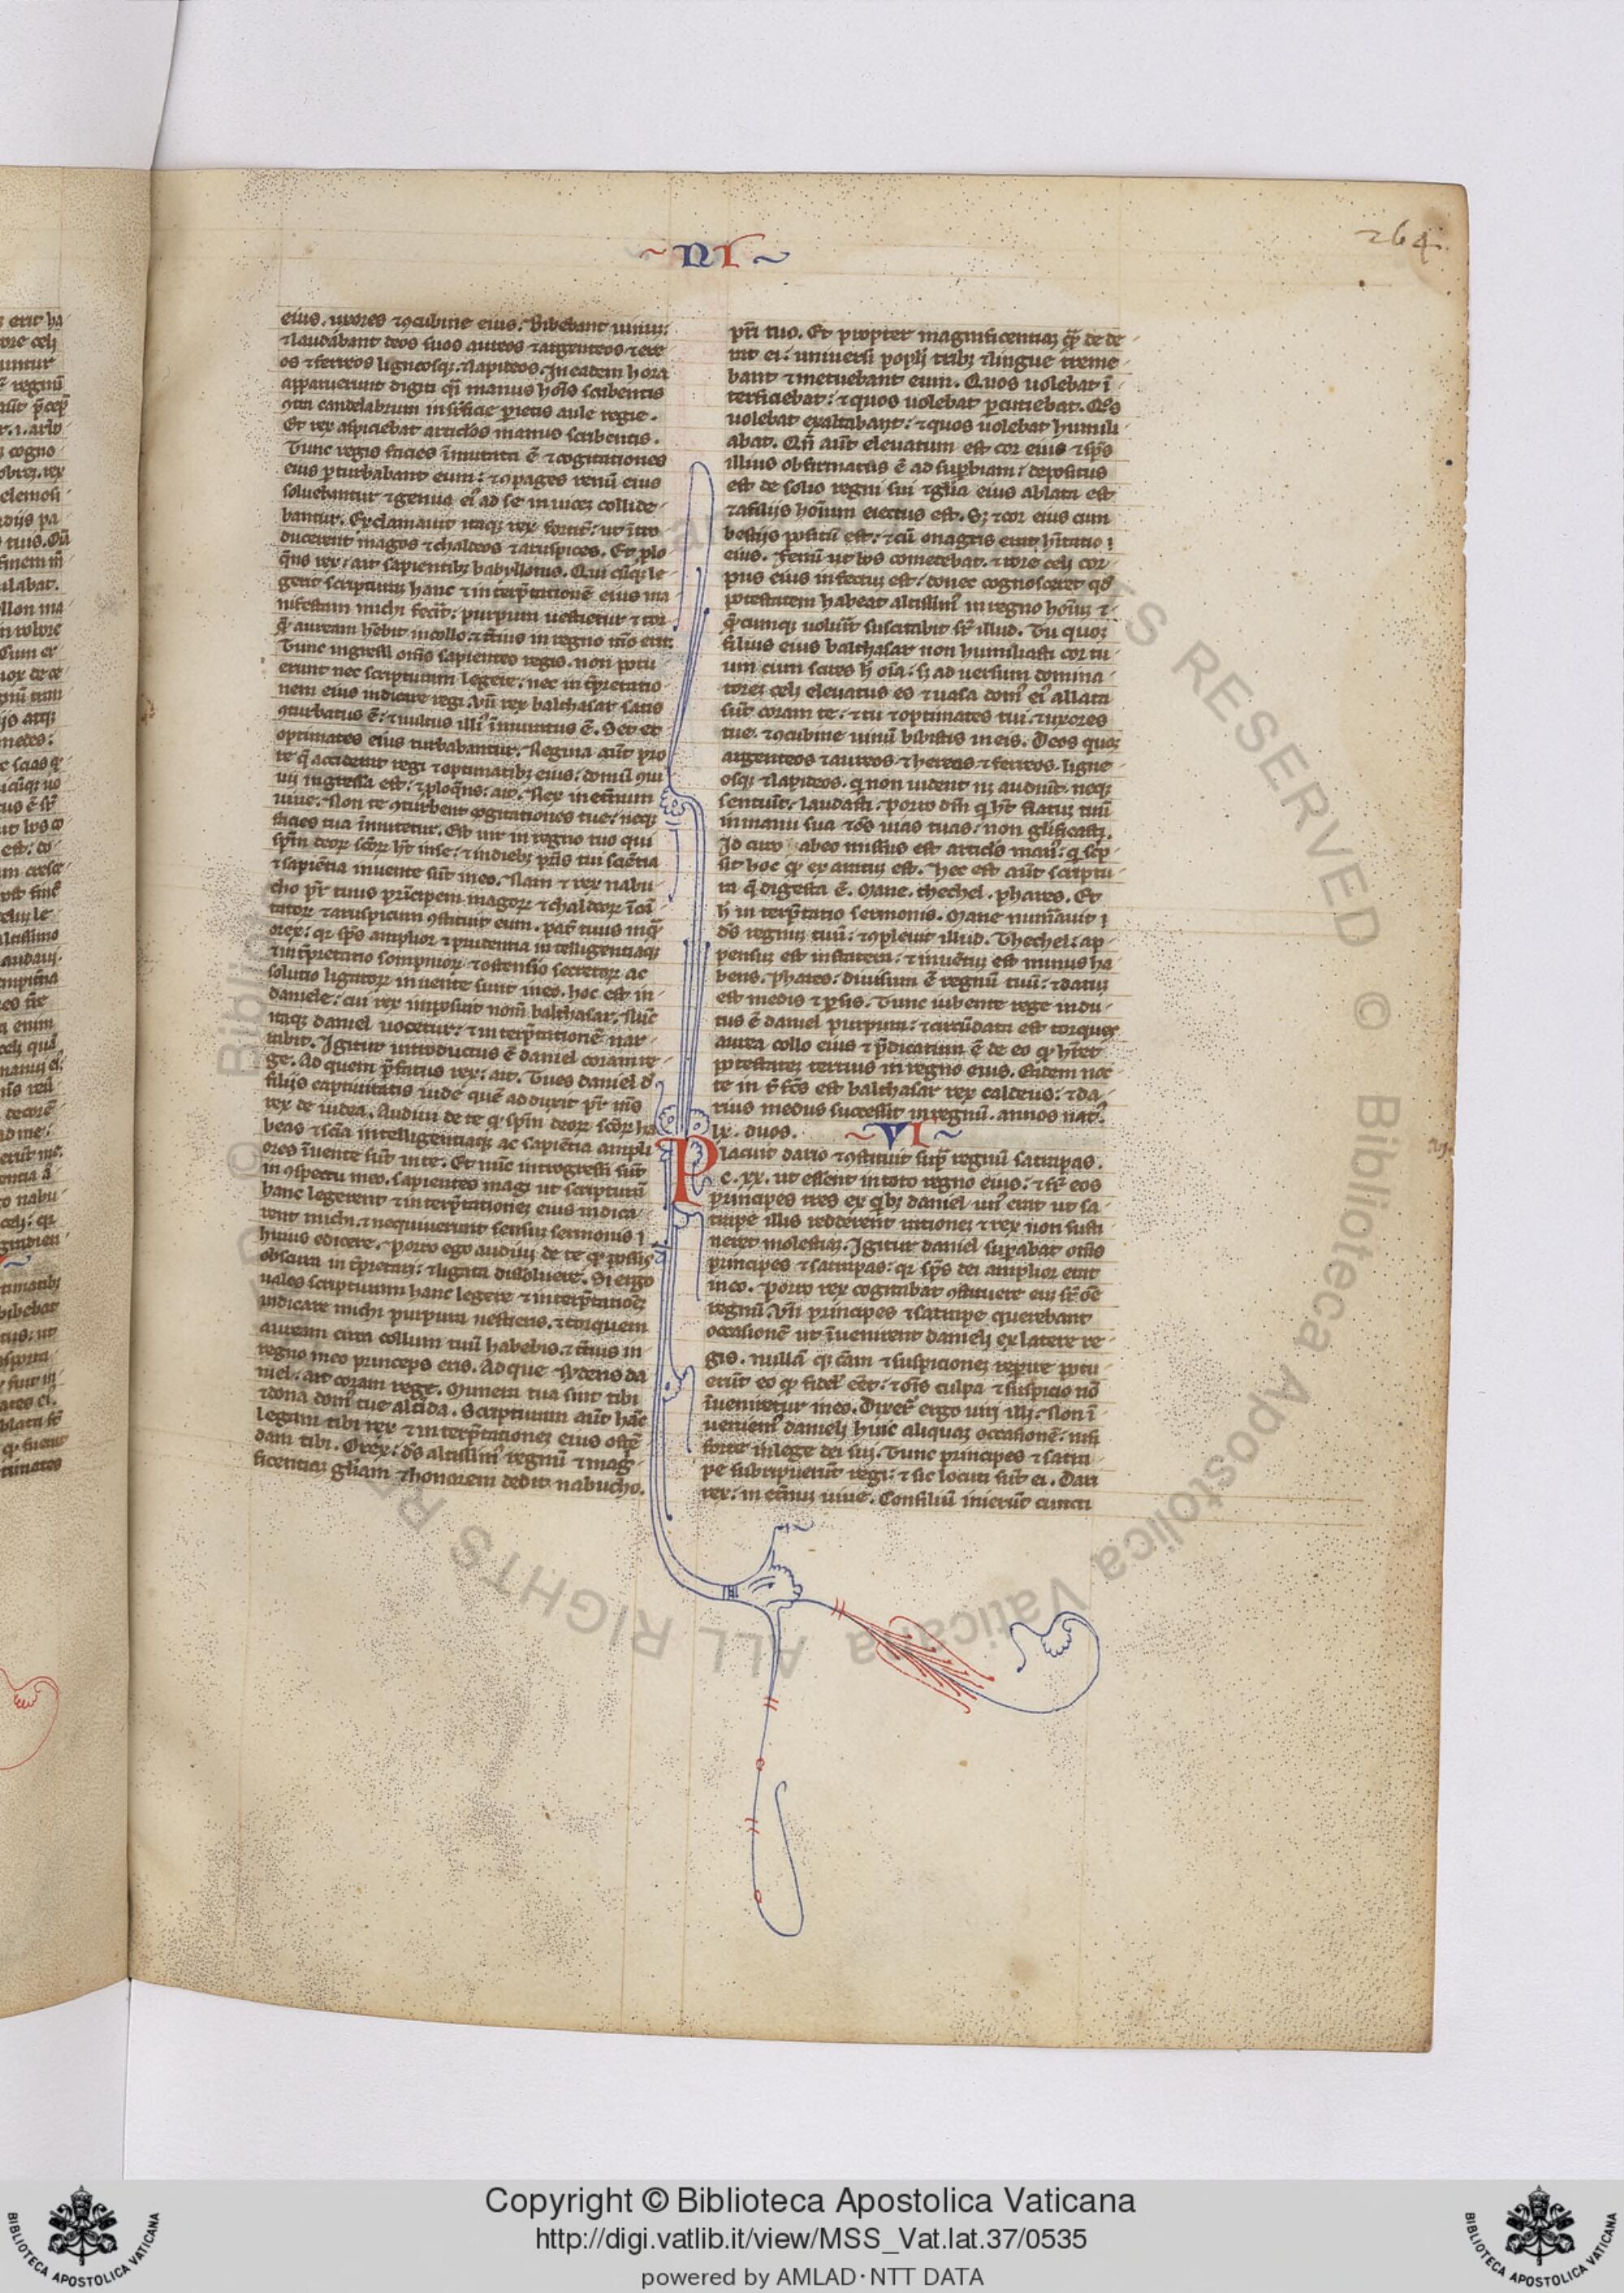 NI
264
eius. uxores ⁊ ꝯcubine eius. Bibebant uinum:
⁊ laudabant deos suos aureos ⁊ argenteos ⁊ ere
os ⁊ ferreos ligneosq; ⁊ lapideos. In eadem hora
apparuerunt digiti q̄i manus hoīs scribentis
ꝯtra candelabrum in suꝑficie parietis aule regie.
Et rex aspiciebat articlos manus scribentis.
Tunc regis facies īmutata ē ⁊ cogitationes
eius ꝑturbabant eum: ⁊ ꝯpages renū eius
soluebantur ⁊ genua eiꝰ ad se inuicem collide
bantur. Exclamauit itaq; rex fortit̄: ut ītro
ducerent magos ⁊ chaldeos ⁊ aruspices. Et plo
q̄ns rex: ait sapientib; babyllonis. Qui cūq; le
gerit scripturam hanc ⁊ interp̄tationē eius ma
nifestam michi fecit̄: purpura uestietur ⁊ tor
q̄m auream hēbit in collo. ⁊ t̄cius in regno mō erit.
Tunc ingressi om̄s sapientes regis. non potu
erunt nec scripturam legere: nec interp̄tatio
nem eius indicare regi. Vn̄ rex balthasar satis
ꝯturbatus ē: ⁊ uultus illiꝰ īmutatus ē. Set et
optimates eius turbabantur. Regina aūt pro
re q̄ acciderat regi ⁊ optimatib; eius: domū ꝯui
uij ingressa est: ⁊ ploq̄ns: ait. Rex in et̄num
uiue. Non te ꝯturbent cogitationes tue: neq;
facies tua īmutetur. Est uir in regno tuo qui
sp̄m deoꝝ scōꝝ ht̄ in se: ⁊ in dieb; pr̄is tui sciētia
⁊ sapiētia inuente sūt in eo. Nam ⁊ rex nabu
cho pr̄ tuus prīcipem magoꝝ ⁊ chaldeoꝝ īcā
tatoꝝ ⁊ aruspicum ꝯstituit eum. pat̄ tuus inq̄
o rex: qr sp̄s amplior ⁊ prudentia intelligentiaq;
⁊ int̄pretatio sompnioꝝ ⁊ ostensio secretoꝝ ac
solutio ligatoꝝ inuente sunt in eo. hoc est in
daniele: cui rex imposuit nom̄ balthasar. Nūc
itaq; daniel uocetur: ⁊ interp̄tationē nar
rabit. Igitur introductus ē daniel coram re
ge. Ad quem p̄fatus rex: ait. Tu es daniel d̄
filijs captiuitatis iude quē adduxit pr̄ mṡ
rex de iudea. Audiui de te q̄ sp̄m deoꝝ scōꝝ ha
beas ⁊ scīa intelligentiaq; ac sapiētia ampli
ores īuente sūt in te. Et nūc introgressi sūt
in ꝯspectu meo. sapientes magi ut scripturā
hanc legerent ⁊ interp̄tationem eius indica
rent michi. ⁊ nequiuerunt sensum sermonis
huius edicere. Porro ego audiui de te q̄ possis
obscura int̄pretari: ⁊ ligata dissoluere. Si ergo
uales scripturam hanc legere ⁊ interp̄tationem
indicare michi purpura uestieris. ⁊ torquem
auream circa collum tuū habebis. ⁊ t̄cius in
regno meo princeps eris. Ad que rn̄dens da
niel: ait coram rege. Munera tua sint tibi
⁊ dona domꝰ tue alt̄i da. Scripturam aūt hāc
legam tibi rex ⁊ interp̄tationem eius ostē
dam tibi. O rex: dṡ altissimꝰ regnū ⁊ mag
ficentiam gliam ⁊ honorem dedit nabucho.
pr̄i tuo. Et propter magnificentiam q̄ de de
rat ei: uniuersi popli trib; ⁊ lingue treme
bant ⁊ metuebant eum. Quos uolebat ī
terficiebat: ⁊ quos uolebat ꝑcutiebat. Qōs
uolebat exaltabant: ⁊ quos uolebat humili
abat. Qn̄ aūt eleuatum est cor eius ⁊ sp̄s
illius obfirmatus ē ad suꝑbiam: depositus
est de solio regni sui ⁊ glia eius ablata est
⁊ a filijs hoīum eiectus est. S; ⁊ cor eius cum
bestijs positū est: ⁊ cū onagris erat hītatio
eius. Fenū ut bos comedebat. ⁊ rore celi cor
pus eius infectum est: donec cognosceret qd̄
potestatem habeat altissimꝰ in regno hoīum ⁊
q̄cumq; uolūit suscitabit sr̄ illud. Tu quoq;
filius eius balthasar non humiliasti cor tu
um cum scires h̄ oīa: s; aduersum domina
torem celi eleuatus es ⁊ uasa domꝰ eiꝰ allata
sūt coram te: ⁊ tu ⁊ optimates tui. ⁊ uxores
tue. ⁊ ꝯcubine uinū bibistis in eis. Deos quoq;
argenteos ⁊ aureos ⁊ hereos ⁊ ferreos. ligne
osq; ⁊ lapideos. qui non uident neq; audiūt. neq;
sentiūt. laudasti. porro dm̄ q ht̄ flatum tuū
in manu sua ⁊ oṡ uias tuas: non glificasti.
Id circo ab eo missus est articlus manꝰ: q scp̄
sit hoc q̄ exaratum est. Hec est aūt scriptu
ra q̄ digesta ē. Mane. thechel. phares. Et
h̄ interp̄tatio sermonis. Mane num̄auit
dṡ regnum tuū: ⁊ ꝯpleuit illud. Thechel: ap
pensum est in statera: ⁊ inuentum est minus ha
bens. Phares: diuisum ē regnū tuū: ⁊ datum
est medis ⁊ ꝑsis. Tunc iubente rege indu
tus ē daniel purpura: ⁊ circūdata est torques
aurea collo eius ⁊ p̄dicatum ē de eo q̄ hr̄et
potestatem tertius in regno eius. Eadem noc
te int̄fc̄s est balthasar rex caldeus: ⁊ da
rius medus successit in regnū. annos natꝰ
lx. duos.
VI
Placuit dario ⁊ ꝯstituit suꝑ regnū satrapas.
c. xx. ut essent in toto regno eius: ⁊ sr̄ eos
principes tres ex qb; daniel unꝰ erat ut sa
trape illis redderent rationem ⁊ rex non susti
neret molestiam. Igitur daniel suꝑabat om̄s
principes ⁊ satrapas: qr sp̄s dei amplior erat
in eo. Porro rex cogitabat ꝯstituere eum sr̄ om̄e
regnū. Vn̄ principes ⁊ satrape querebant
occasionē ut īuenirent danieli ex latere re
gis. nullā q; cām ⁊ suspicionem repperire potu
erūt eo q̄ fidelꝰ eēt: ⁊ om̄s culpa ⁊ suspicio nō
īueniretur in eo. Dixerꝰ ergo uiri illi. Non ī
ueniemꝰ danieli huic aliquam occasionē. nisi
forte in lege dei sui. Tunc principes ⁊ satra
pe subripuerūt regi: ⁊ sic locuti sūt ei. Dari
rex: in et̄num uiue. Consiliū inierūt cuncti
Copyright © Biblioteca Apostolica Vaticana
http://digi.vatlib.it/view/MSS_Vat.lat.37/0535
powered by AMLAD·NTT DATA
BIBLIOTECA APOSTOLICA VATICANA
BIBLIOTECA APOSTOLICA VATICANA